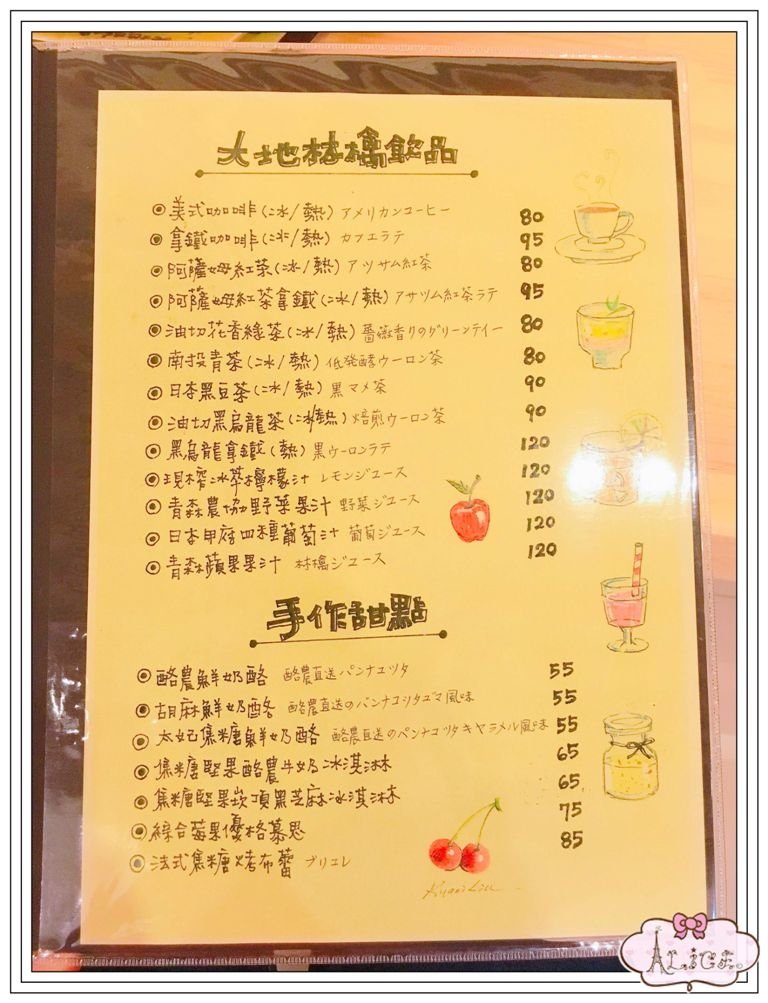 大地林檎飲品
美式咖啡(冰/熱) アメリカンコーヒー 80
拿鐵咖啡(冰/熱) カフェラテ 95
阿薩姆紅茶(冰/熱) アツサム紅茶 80
阿薩姆紅茶拿鐵(冰/熱) アサツム紅茶ラテ 95
油切花香綠茶(冰/熱) 薔薇香りのグリーンティー 80
南投青茶(冰/熱) 低発酵ウーロン茶 80
日本黑豆茶(冰/熱) 黒マメ茶 90
油切黑烏龍茶(冰/熱) 焙煎ウーロン茶 90
黑烏龍拿鐵(熱) 黒ウーロンラテ 120
現榨冰茶檸檬汁 レモンジュース 120
青森農協野菜果汁 野菜ジュース 120
日本甲府四種葡萄汁 葡萄ジュース 120
青森蘋果果汁 林檎ジュース 120
手作甜點
酪農鮮奶酪 酪農直送パンナコツタ 55
胡麻鮮奶酪 酪農直送のパンナコツタゴマ風味 55
太妃焦糖鮮奶酪 酪農直送のパンナコツタキャラメル風味 55
焦糖堅果酪農牛奶冰淇淋 65
焦糖堅果崁頂黑芝麻冰淇淋 65
綜合莓果優格慕思 75
法式焦糖烤布蕾 ブリュレ 85
ALICE